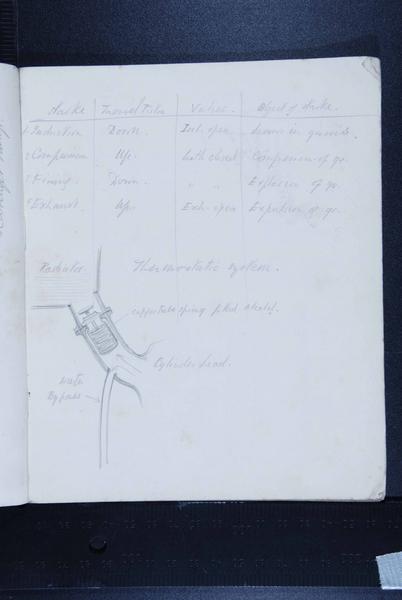 Stroke Travel Piston Valves. Object of stroke.
1 Induction Down. Inl. open drawn in gas
2 Compression Up. both closed Compression of gas.
3 Firing. Down. " " Explosion of gas.
4 Exhaust. Up. Exh. open Expulsion of gas.
Radiator. Thermostatic system.
copper tube spring filled alcohol.
Cylinder head.
water
Bypass